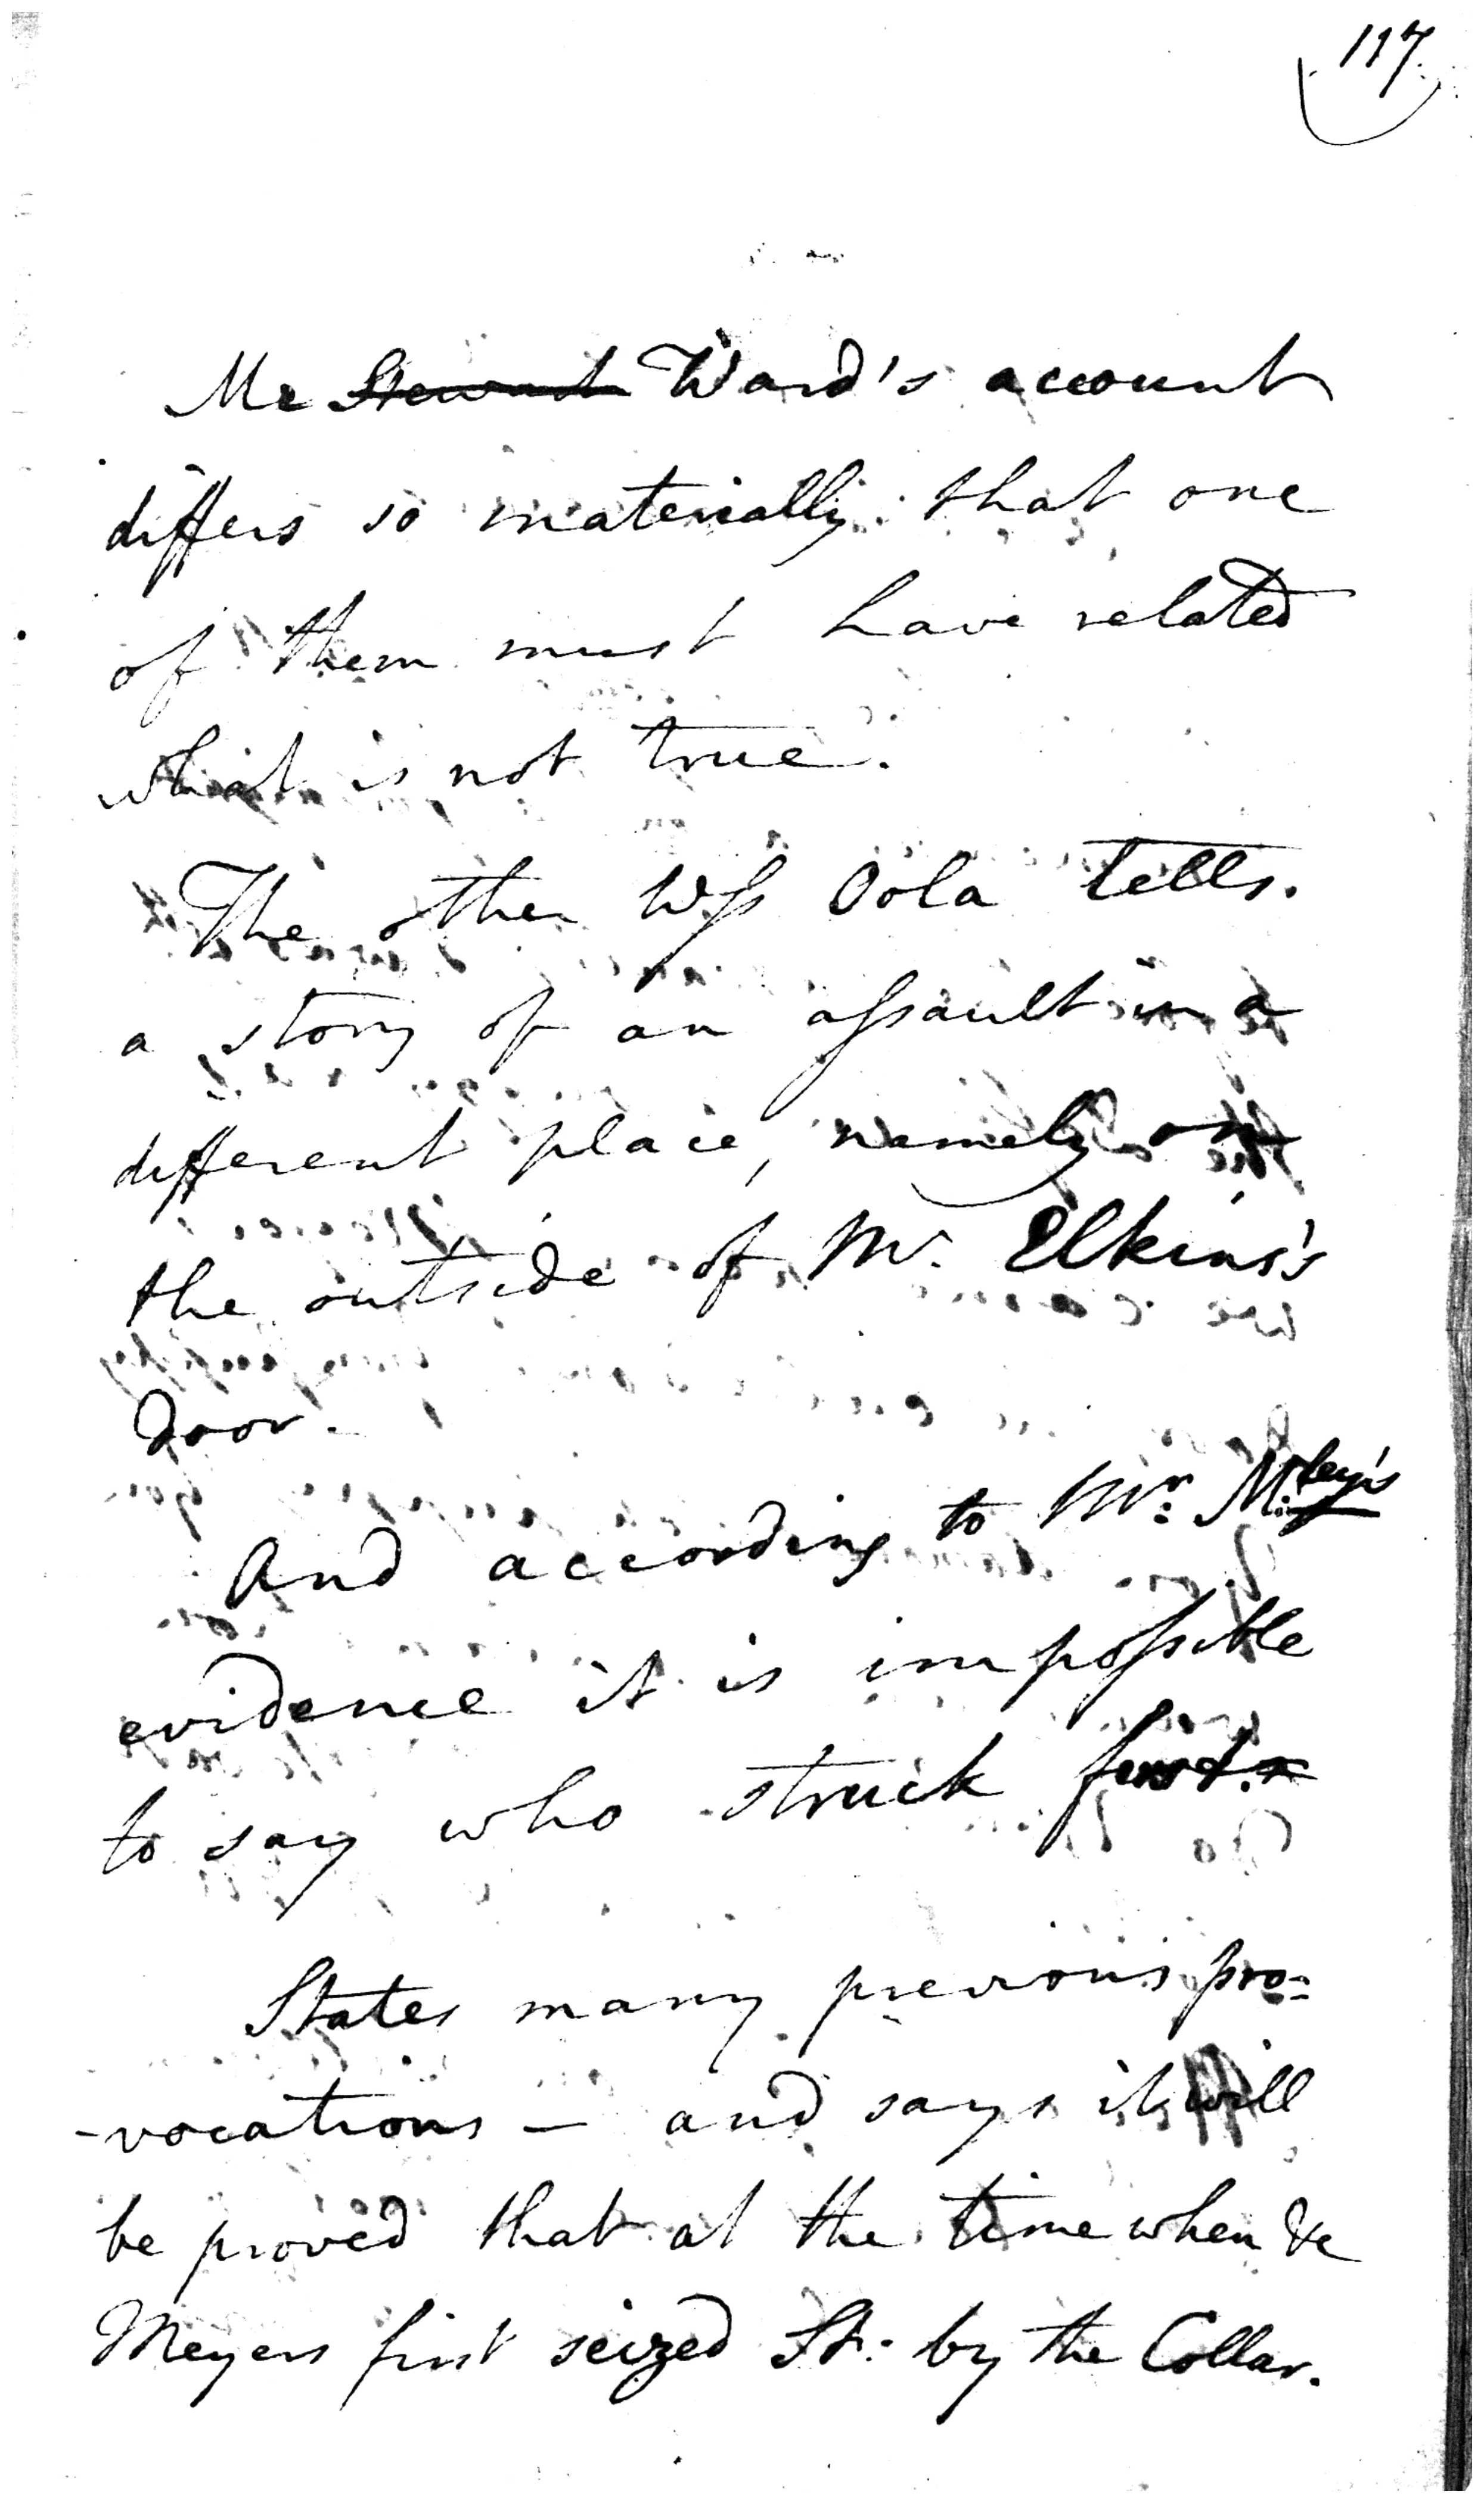 117
Mr Stewart Ward's account
differs so materially that one
of them must have related
what is not true.
The other Wss Oola tells
a story of an assault in a
different place, namely on
the outside of Mr. Elkins's
door.
And according to Mr.
evidence it is impossible
to say who struck first.
States many previous pro=
-vocations - and says it will
be proved that at the time when
Meyers first seized St: by the Collar.